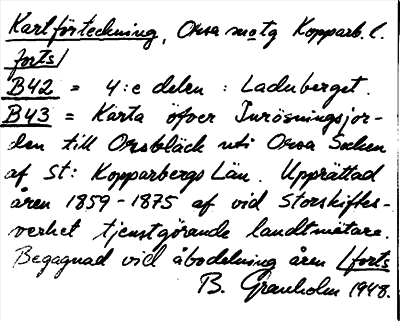 Kartförteckning, Orsa sn o tg Kopparb. l.
forts/
B42 = 4:e delen : Laduberget.
B43 = Karta öfver Inrösningsjor-
den till Orsbläck uti Orsa Socken
af St: Kopparbergs Län. Upprättad
åren 1859-1875 af vid Storskiftes-
verket tjenstgörande landtmätare.
Begagnad vid åbodelning åren /forts
B. Granholm 1948.